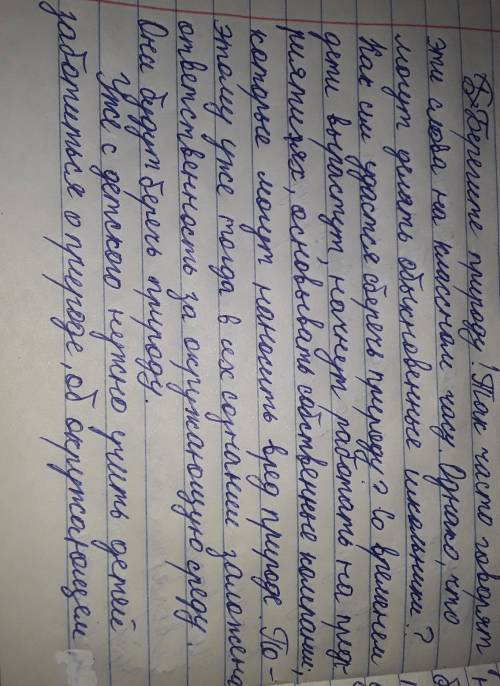 Берегите природу! Так часто говорят
эти слова на классном часу. Однако, что
могут делать обыкновенные школьники?
Как им удастся сберечь природу? Со временем
дети вырастут, начнут работать на пред-
риятиях, основывать собственные компании,
которые могут наносить вред природе. По-
этому уже тогда в их сознании заложена
ответственность за окружающую среду.
Они будут беречь природу.
Уже с детского нужно учить детей
заботиться о природе, об окружающем